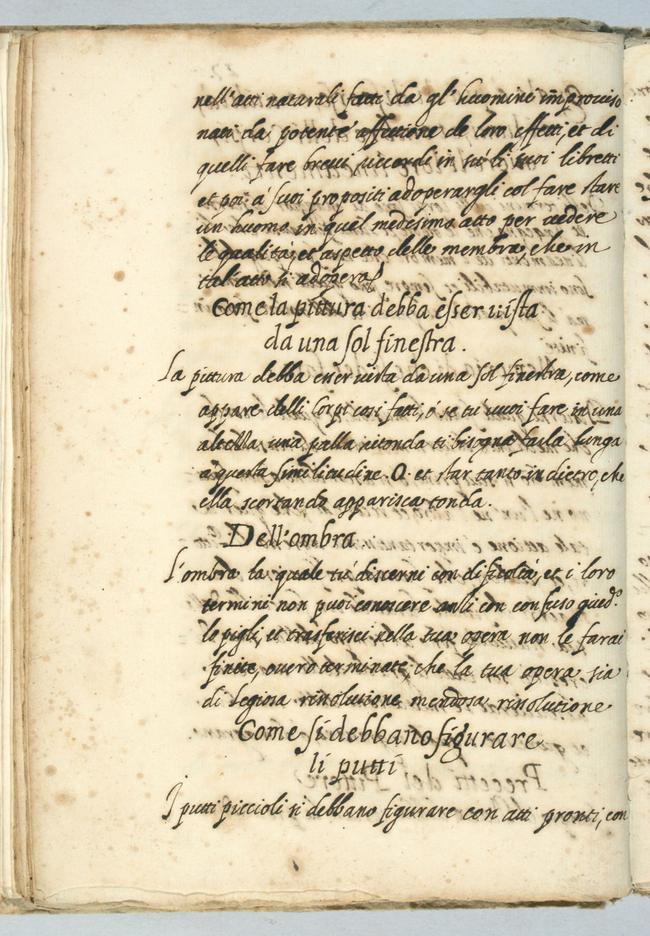 nell'atti naturali fatti da gl'huomini improviso
nati da potente affettione de loro effetti, et di
quelli fare brevi riccordi in sù li tuoi libretti
et poi à suoi propositi adoperargli col fare stare
un huomo in quel medesimo atto per vedere
le qualità, et aspetto delle membra, che in
tal atto si adopera
Come la pittura debba esser vista
da una sol finestra.
La pittura debba esser vista da una sol finestra, come
appare delli Corpi cosi fatti, ó se tu vuoi fare in una
altezza una palla ritonda ti bisogna farla lunga
a questa similitudine. O. et star tanto in dietro, che
ella scortando apparisca tonda.
Dell'ombra
L'ombra la quale tu discerni con dificoltà, et i loro
termini non puoi conoscere anzi con confuso giud.º
le pigli, et trasferisci nella tua opera non le farai
finite, overo terminate, che la tua opera sia
di legiosa risolutione
Come si debbano figurare
li putti
I putti piccioli si debbano figurare con atti pronti, con